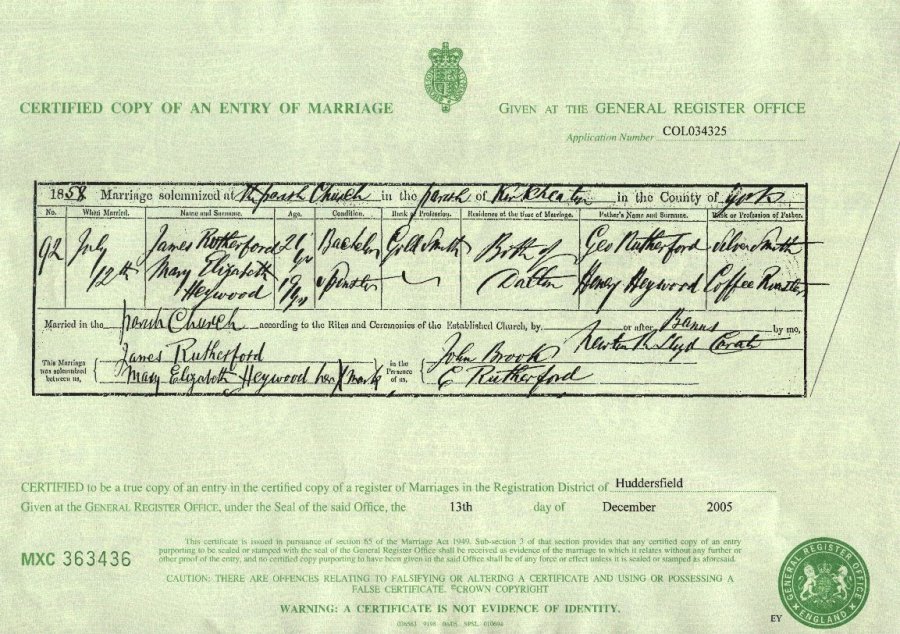 CERTIFIED COPY OF AN ENTRY OF MARRIAGE
GIVEN AT THE GENERAL REGISTER OFFICE
Application Number COL034325
1858 Marriage solemnized at the parish Church in the parish of Kirkheaton in the County of York
No. When Married. Name and Surname. Age. Condition. Rank or Profession. Residence at the time of Marriage. Father's Name and Surname. Rank or Profession of Father.
92 July 12th James Rutherford 21 yrs Bachelor Gold Smith Both of Dalton Geo Rutherford Silver Smith
Mary Elizabeth Heywood yrs Spinster Henry Heywood Coffee Roaster
Married in the parish Church according to the Rites and Ceremonies of the Established Church, by or after Banns by me,
Newton Lloyd Curate
This Marriage was solemnized between us, James Rutherford
Mary Elizabeth Heywood her X mark
in the Presence of us, John Brook
E Rutherford
CERTIFIED to be a true copy of an entry in the certified copy of a register of Marriages in the Registration District of Huddersfield
Given at the GENERAL REGISTER OFFICE, under the Seal of the said Office, the 13th day of December 2005
MXC 363436
This certificate is issued in pursuance of section 65 of the Marriage Act 1949. Sub-section 3 of that section provides that any certified copy of an entry
purporting to be sealed or stamped with the seal of the General Register Office shall be received as evidence of the marriage to which it relates without any further or
other proof of the entry, and no certified copy purporting to have been given in the said Office shall be of any force or effect unless it is sealed or stamped as aforesaid.
CAUTION: THERE ARE OFFENCES RELATING TO FALSIFYING OR ALTERING A CERTIFICATE AND USING OR POSSESSING A
FALSE CERTIFICATE. ©CROWN COPYRIGHT
WARNING: A CERTIFICATE IS NOT EVIDENCE OF IDENTITY.
GENERAL REGISTER OFFICE
ENGLAND
EY